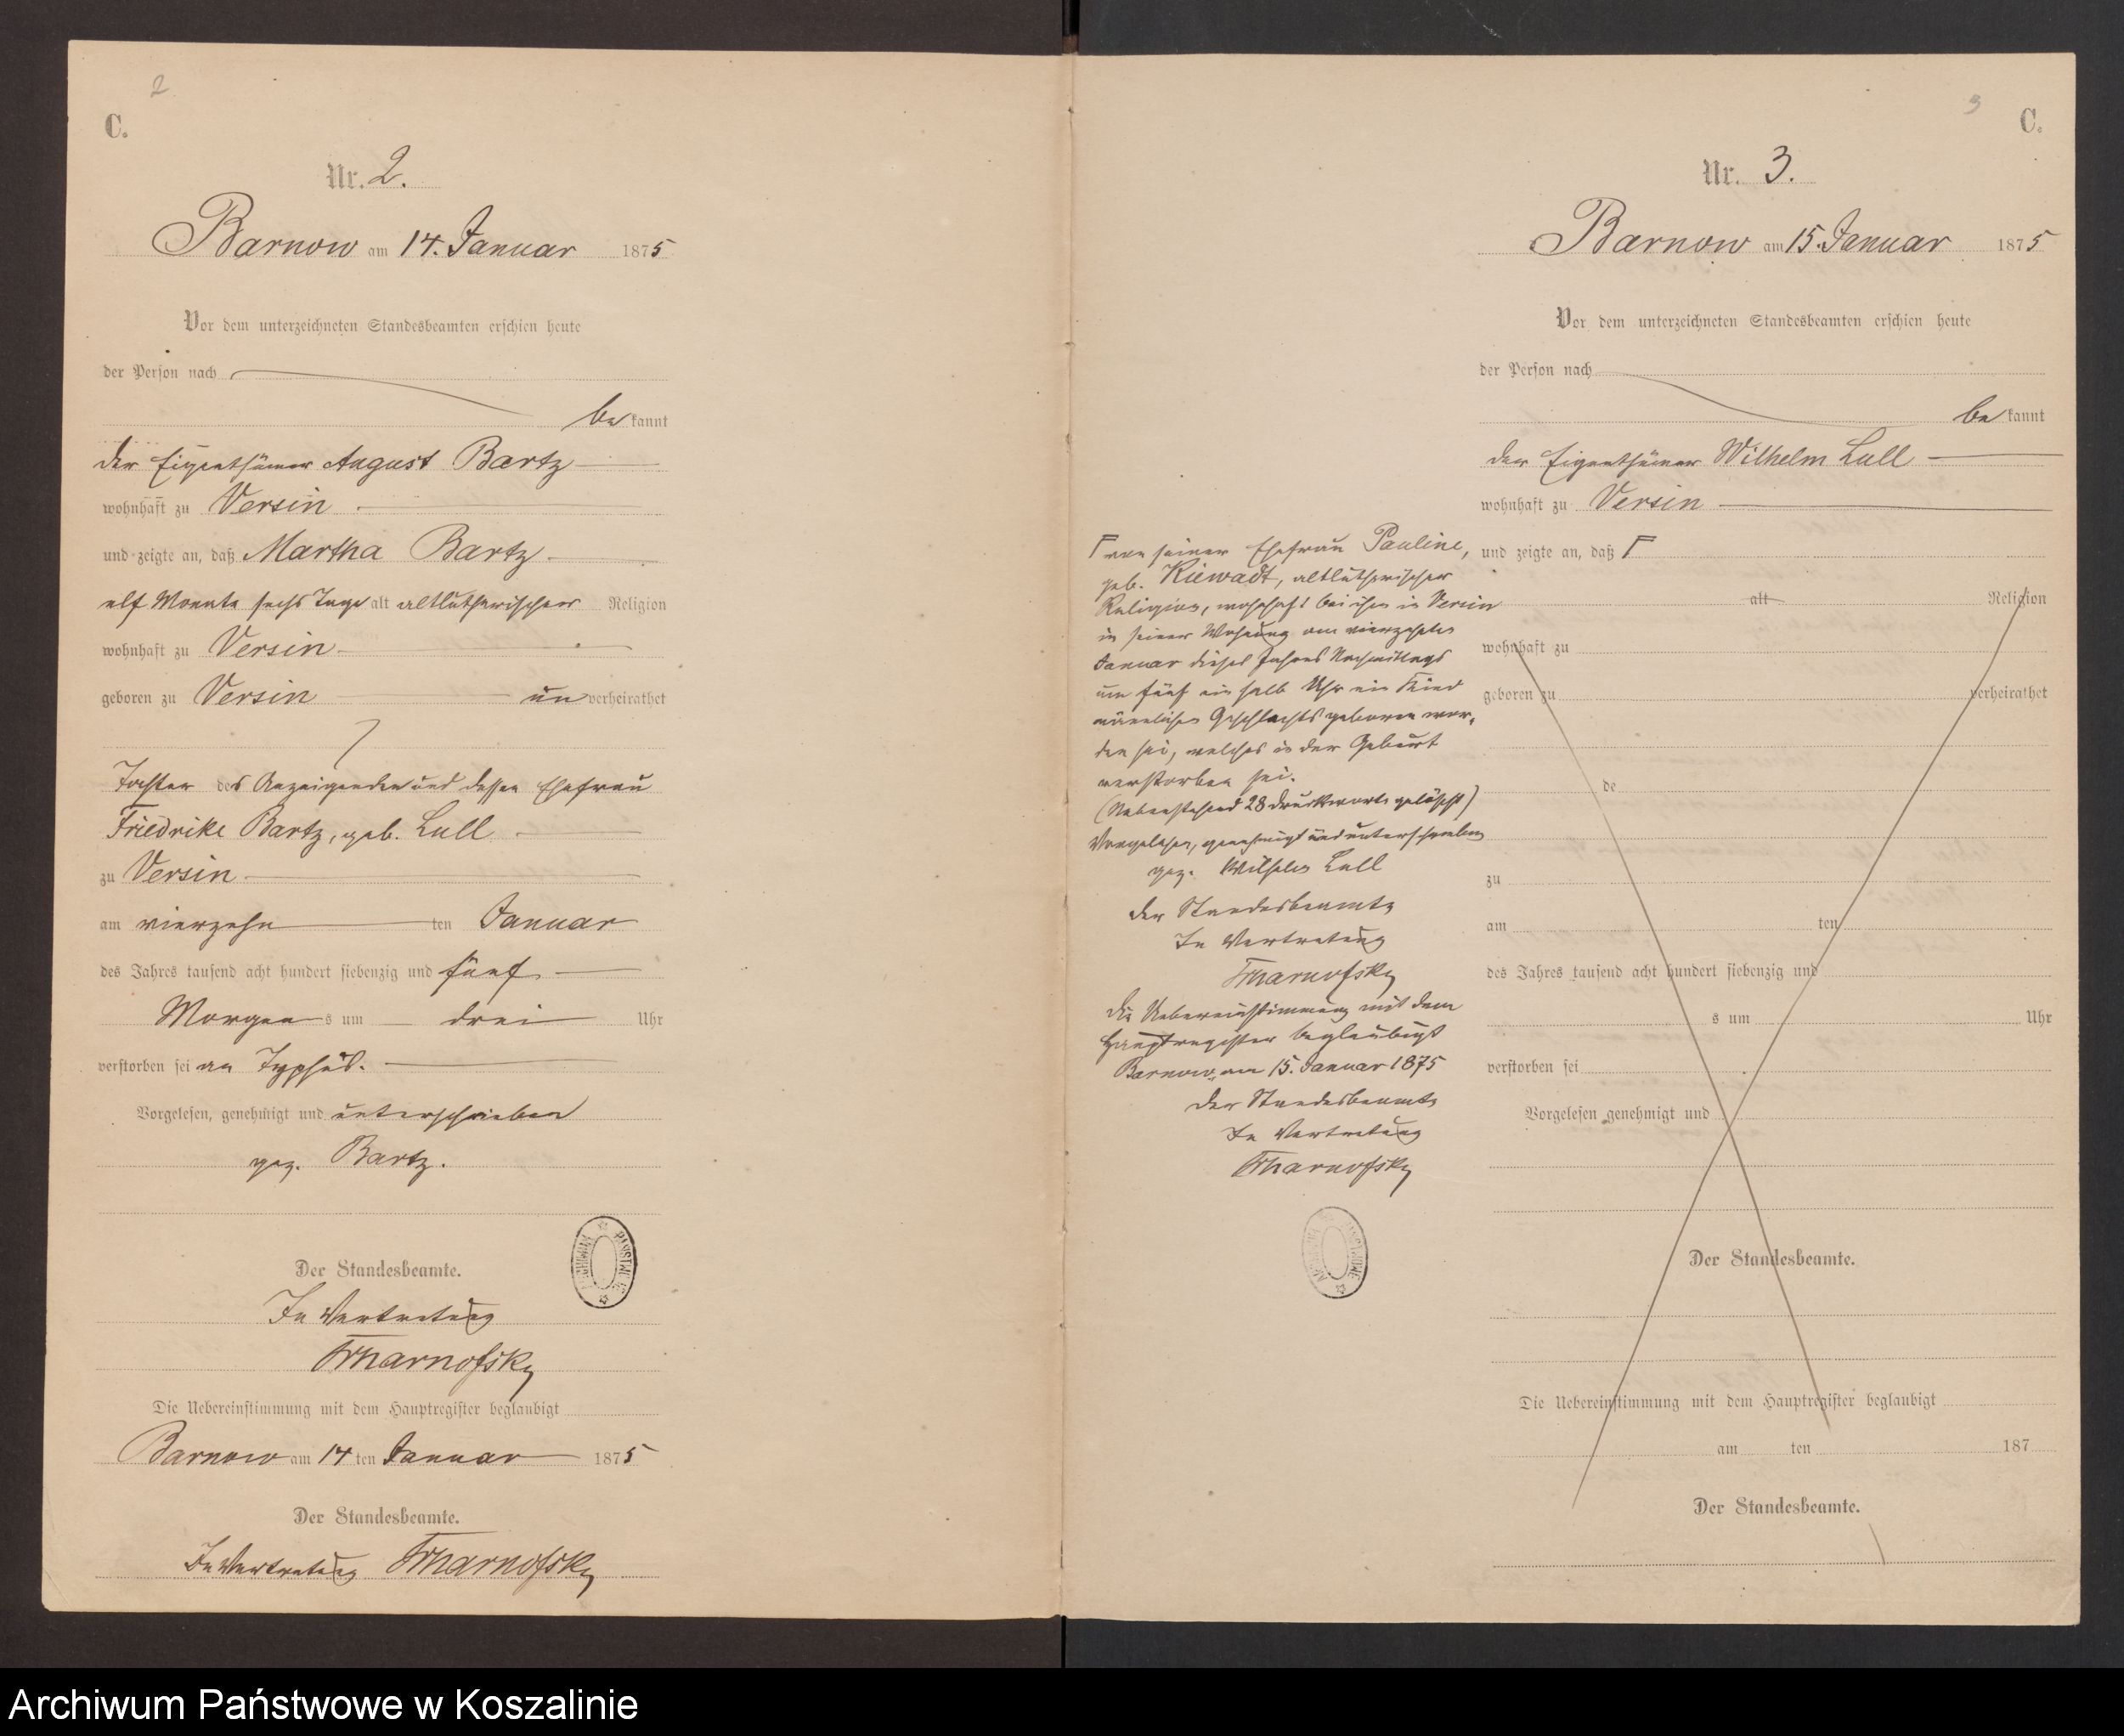 2
C.
Nr. 2.
Barnow am 14. Januar 1875
Vor dem unterzeichneten Standesbeamten erschien heute
der Person nach
be kannt
der Eigenthümer August Bartz
wohnhaft zu Versin
und zeigte an, daß Martha Bartz
elf Monate sechs Tage alt altlutherischer Religion
wohnhaft zu Versin
geboren zu Versin un verheirathet
Tochter des Anzeigenden und dessen Ehefrau
Friedrike Bartz, geb. Lull
zu Versin
am vierzehn ten Januar
des Jahres tausend acht hundert siebenzig und fünf
Morgen s um drei Uhr
verstorben sei an Typhus.
Vorgelesen, genehmigt und unterschrieben
gez. Bartz.
Der Standesbeamte.
In Vertretung
Die Uebereinstimmung mit dem Hauptregister beglaubigt
Barnow am 14 ten Januar 1875
Der Standesbeamte.
In Vertretung
3
C.
Nr. 3.
Barnow am 15. Januar 1875
Vor dem unterzeichneten Standesbeamten erschien heute
der Person nach
be kannt
der Eigenthümer Wilhelm Lull
wohnhaft zu Versin
und zeigte an, daß Γ
alt Religion
wohnhaft zu
geboren zu verheirathet
de
zu
am ten
des Jahres tausend acht hundert siebenzig und
s um Uhr
verstorben sei
Vorgelesen genehmigt und
Der Standesbeamte.
Die Uebereinstimmung mit dem Hauptregister beglaubigt
am ten 187
Der Standesbeamte.
Γ von seiner Ehefrau Pauline,
geb. Kiewadt, altlutherischer
Religion, wohnhaft bei ihm in Versin
in seiner Wohnung am vierzehnten
Januar dieses Jahres Nachmittags
um fünf ein halb Uhr ein Kind
männlichen Geschlechts geboren wor-
den sei, welches in der Geburt
verstorben sei.
(Nebenstehend 28 Druckworte gelöscht)
Vorgelesen, genehmigt und unterschrieben
gez. Wilhelm Lull
Der Standesbeamte
In Vertretung
Die Uebereinstimmung mit dem
Hauptregister beglaubigt
Barnow, am 15. Januar 1875
Der Standesbeamte
In Vertretung
Archiwum Państwowe w Koszalinie